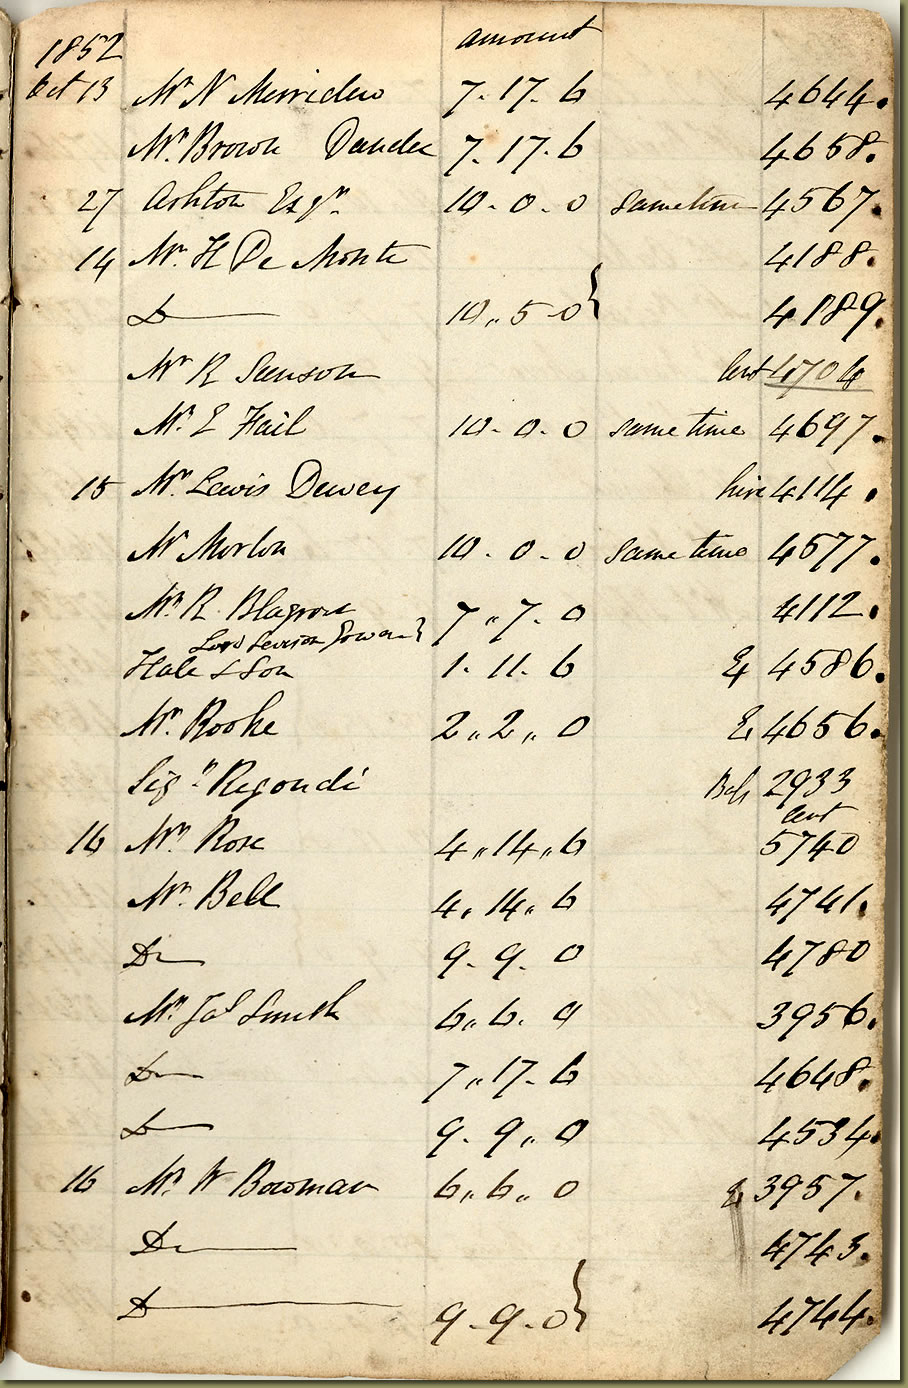 1852 amount
Oct 13 Mr N Merriden 7-17-6 4644.
Mr. Brown Dundee 7-17-6 4658.
27 Ashton Esqr. 10-0-0 same time 4567.
14 Mr. H De Monte 4188.
Do 10,,5-0} 4189.
Mr R Samson 4704
Mr. E Hail 10-0-0 same time 4697.
15 Mr. Lewis Dewey hire 4114.
Mr Morton 10-0-0 same time 4577.
Mr. R. Blagrove 7,,7-0 4112.
Lord Leveson Gower}
Hale & Son 1-11-6 E 4586.
Mr. Rooke 2,,2,,0 E 4656.
Sigr. Regondi 2933
16 Mr. Rose 4,,14,,6 5740
Mr. Bell 4,,14,,6 4741.
Do 9-9-0 4780
Mr Jas Smith 6,,6-0 3956.
Do 7,,17-6 4648.
Do 9-9,,0 4534.
16 Mr. W Bowman 6,,6,,0 E 3957.
Do 4743.
Do 9-9-0} 4744.